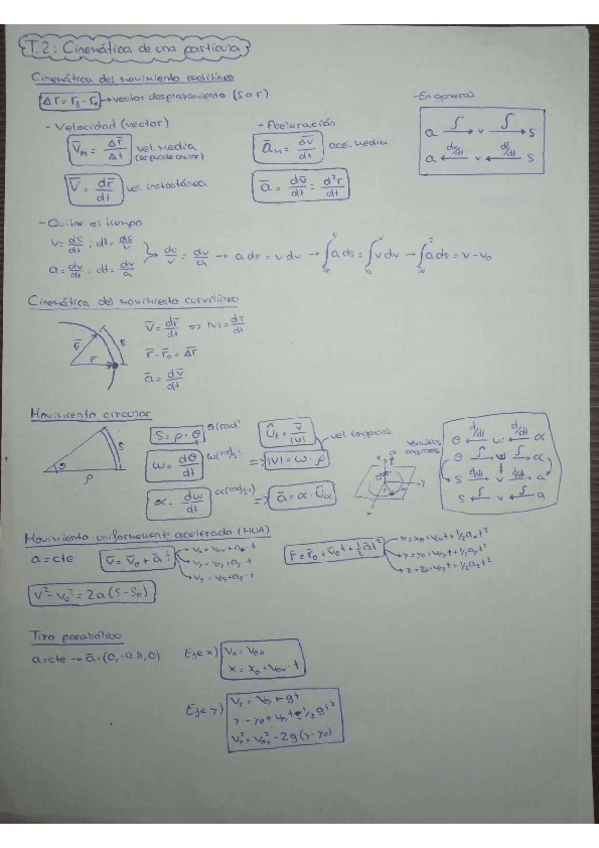 T.2: Cinemática de una partícula
Cinemática del movimiento rectilíneo
Δr̄ = r̄₁ - r̄₀ → vector desplazamiento (s o r)
- En general
a ∫→ v ∫→ s
a ←dv/dt v ←ds/dt s
- Velocidad (vector)
- Aceleración
V̄ₘ = Δr̄/Δt vel. media
(se puede
ā_M = Δv̄/dt ace. media
V̄ = dr̄/dt vel. instantánea
ā = dv̄/dt = d²r/dt
- Quitar el tiempo
v = ds/dt ; dt = ds/v
a = dv/dt ; dt = dv/a
ds/v = dv/a → a ds = v dv → ∫ a ds = ∫ v dv → ∫ a ds = v - v₀
Cinemática del movimiento curvilíneo
V̄ = dr̄/dt ⇒ |V| = ds/dt
r̄ - r̄₀ = Δr̄
ā = dv̄/dt
r̄ r s
Movimiento circular
θ ρ s
S = ρ · θ θ(rad)
Û_t = v̄/|v| vel tangencial
ω = dθ/dt ω(rad/s) ⇒ |V| = ω · ρ
α = dω/dt α(rad/s²) ⇒ ā = α · Û_α
Variables angulares
θ ←d/dt ω ←d/dt α
θ ←∫ ω ←∫ α
s dv/dt v dv/dt a
s ←∫ v ←∫ a
Movimiento uniformemente acelerado (MUA)
a = cte
v̄ = v̄₀ + ā · t
Vx = V₀x + ax · t
Vy = V₀y + ay · t
Vz = V₀z + az · t
r̄ = r̄₀ + v̄₀t + ½ āt²
x = x₀ + v₀xt + 1/2 axt²
y = y₀ + v₀yt + 1/2 ayt²
z = z₀ + v₀zt + 1/2 azt²
V² - V₀² = 2a(s - s₀)
Tiro parabólico
a = cte → ā = (0, -9.8, 0)
Eje x)
Vx = V₀x
x = x₀ + V₀x · t
Eje y)
Vy = V₀y + gt
y = y₀ + V₀yt + 1/2 gt²
Vy² = V₀y² - 2g(y - y₀)